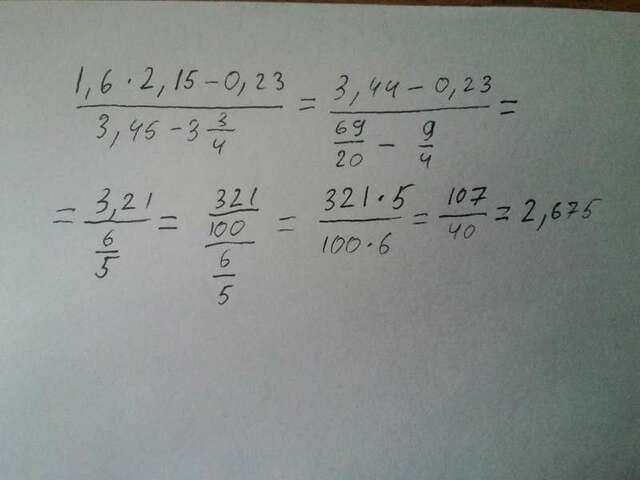 (1,6·2,15-0,23)/(3,45-3 3/4) = (3,44-0,23)/(69/20 - 9/4) =
= 3,21/(6/5) = (321/100)/(6/5) = (321·5)/(100·6) = 107/40 = 2,675